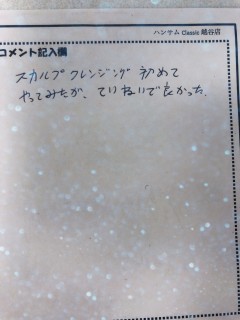 ハンサム Classic 越谷店
コメント記入欄
スカルプクレンジング 初めて
やってみたが、ていねいで良かった.